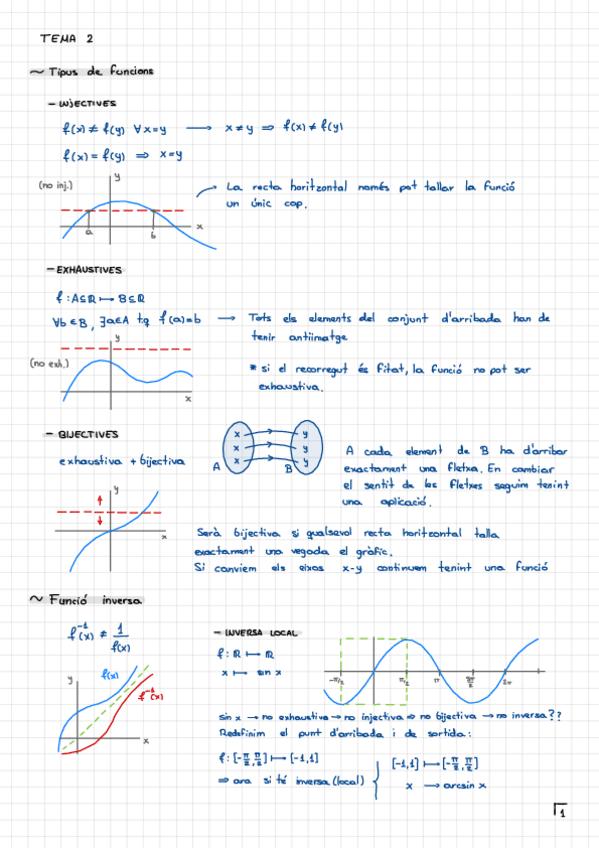 TEMA 2
~ Tipus de funcions
- INJECTIVES
f(x) ≠ f(y) ∀x=y → x≠y ⇒ f(x) ≠ f(y)
f(x) = f(y) ⇒ x=y
(no inj.)
y
x
a
b
La recta horitzontal només pot tallar la funció
un únic cop.
- EXHAUSTIVES
f : A⊆ℝ ↦ B⊆ℝ
∀b∈B, ∃a∈A tq f(a)=b → Tots els elements del conjunt d'arribada han de
tenir antiimatge
(no exh.)
y
x
* si el recorregut és fitat, la funció no pot ser
exhaustiva.
- BIJECTIVES
exhaustiva + bijectiva
x y
x y
x y
A B
A cada element de B ha d'arribar
exactament una fletxa. En canviar
el sentit de les fletxes seguim tenint
una aplicació.
y
x
Serà bijectiva si qualsevol recta horitzontal talla
exactament una vegada el gràfic.
Si canviem els eixos x-y continuem tenint una funció
~ Funció inversa
f⁻¹(x) ≠ 1/f(x)
y
x
f(x)
f⁻¹(x)
- INVERSA LOCAL
f : ℝ ↦ ℝ
x ↦ sin x
-π/2 π/2 π 3π/2 2π
sin x → no exhaustiva → no injectiva ⇒ no bijectiva → no inversa??
Redefinim el punt d'arribada i de sortida:
f : [-π/2, π/2] ↦ [-1,1]
⇒ ara si té inversa (local)
[-1,1] ↦ [-π/2, π/2]
x → arcsin x
1